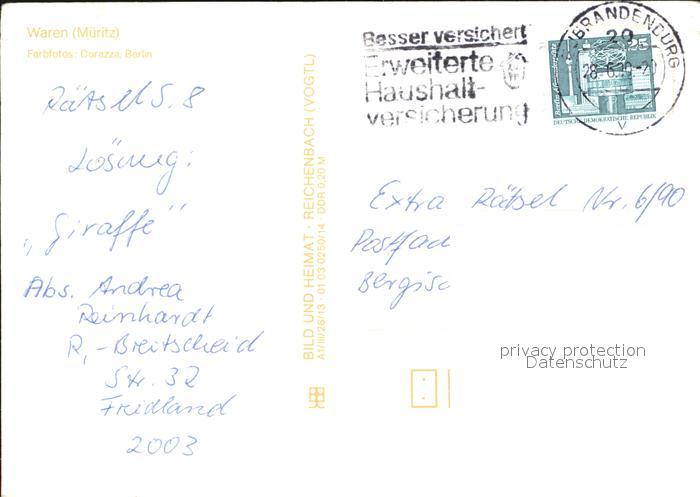 Waren (Müritz)
Farbfotos: Corazza, Berlin
Rätsel S. 8
Lösung:
„Giraffe"
Abs. Andrea
Reinhardt
R.-Breitscheid
Str. 32
Fridland
2003
BILD UND HEIMAT · REICHENBACH (VOGTL)
A1/III/26/13 · 01 03 0250/14 · DDR 0,20 M
Besser versichert
Erweiterte
Haushalt-
versicherung
BRANDENBURG
20
28-6.90-20
V
25
DEUTSCHE DEMOKRATISCHE REPUBLIK
Extra Rätsel Nr. 6/90
Postfac
Bergisc
privacy protection
Datenschutz